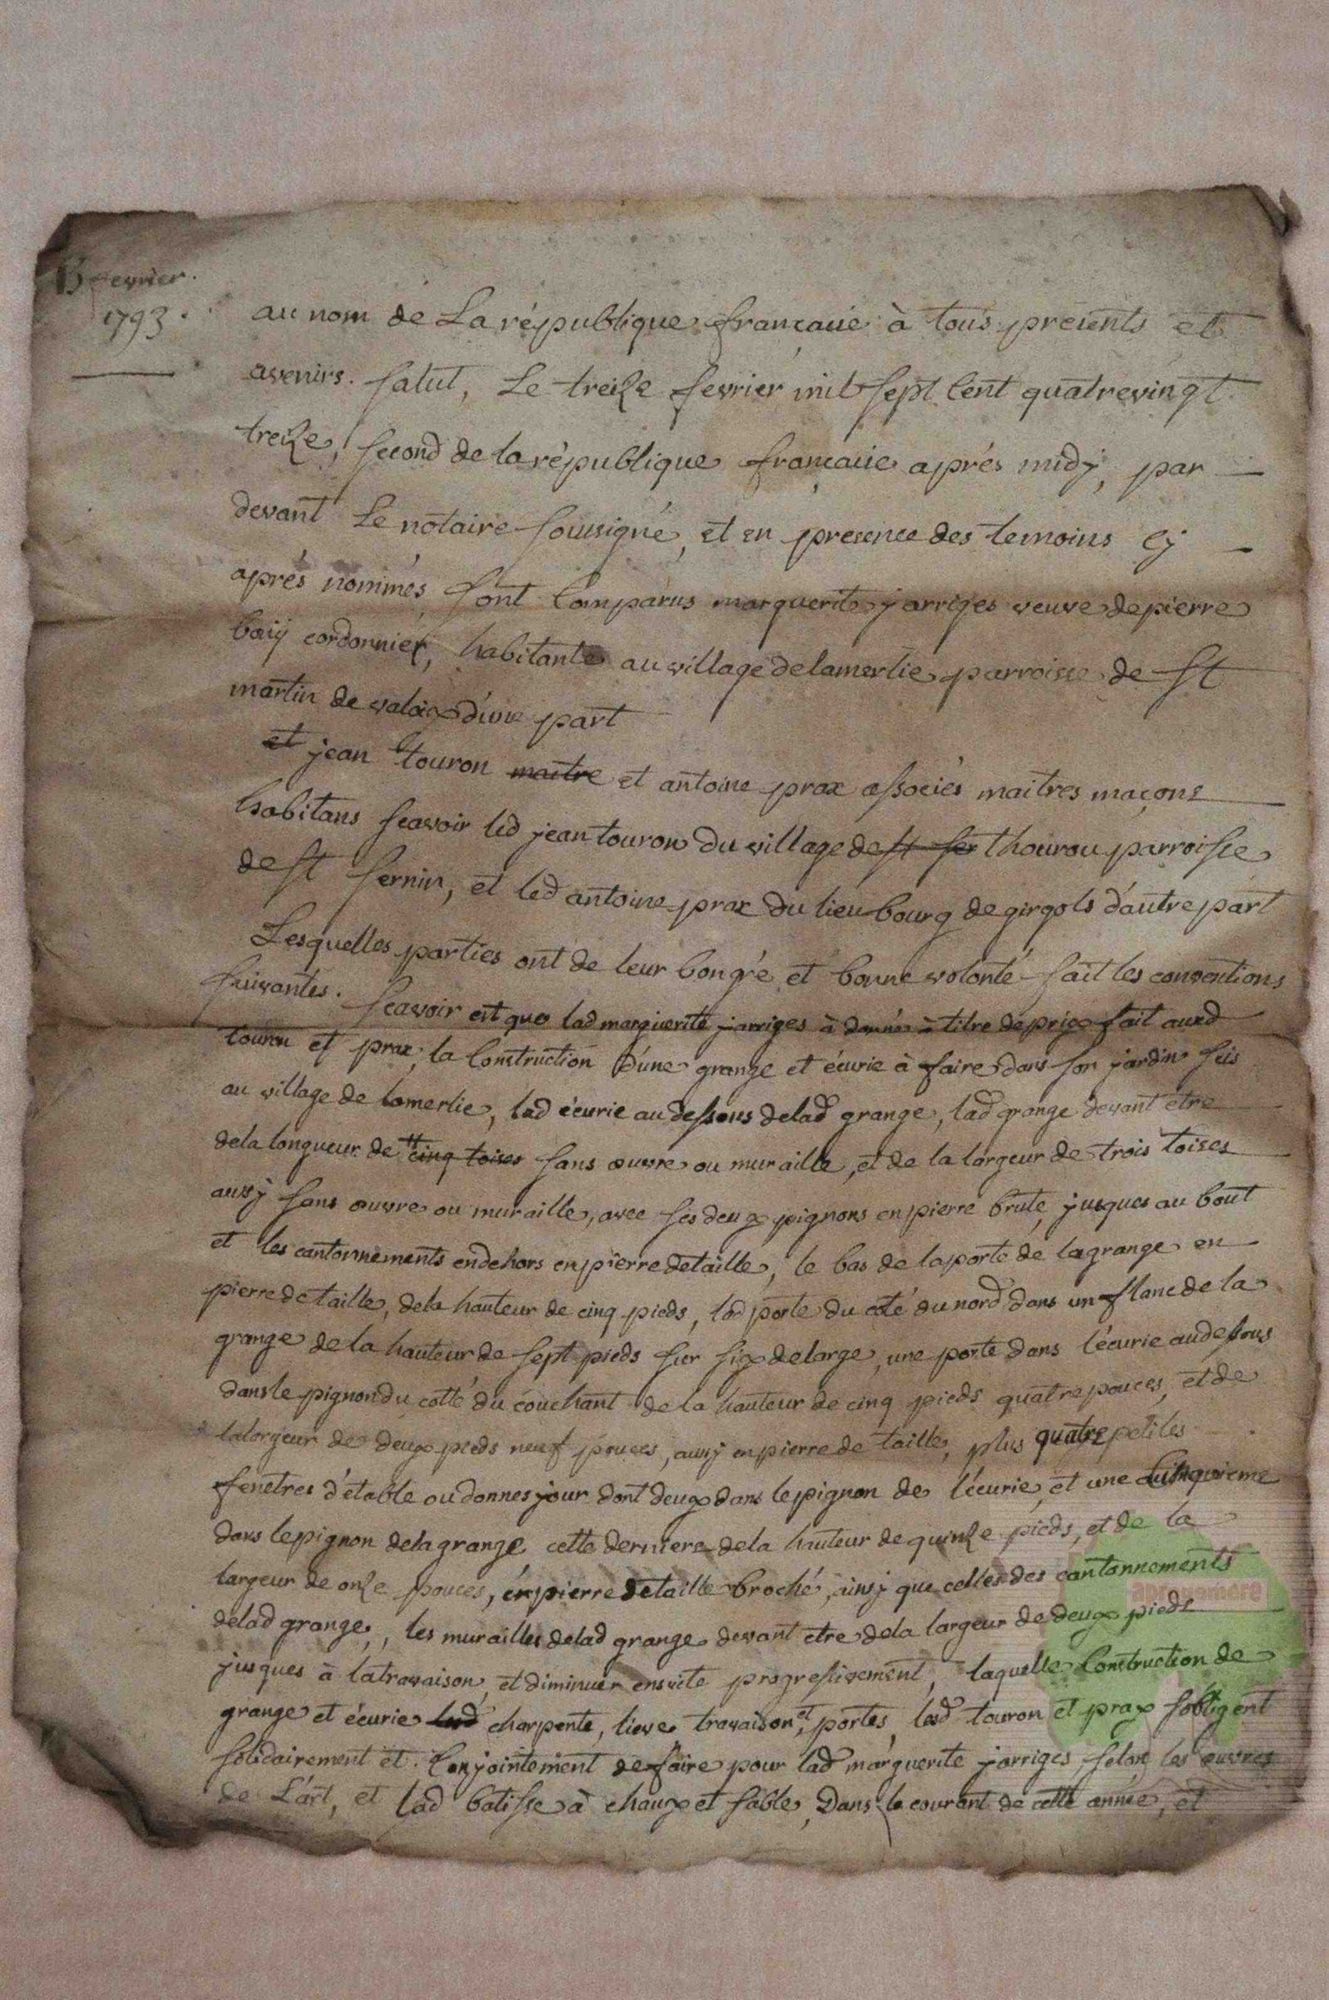 13 fevrier.
1793.
au nom de La république francaise à tous présents et
avenirs. salut, Le treize fevrier mil sept Cent quatrevingt
treize, second de la république francaise aprés midy, par
devant Le notaire soussigné, et en presence des temoins Cy
aprés nommés sont Comparus marguerite jarriges veuve de pierre
cordonnier, habitante au village de lamerlie parroisse de st
martin de d'une part
et jean touron maitre et antoine prax associés maitres maçons
habitans scavoir led jean touron du village de st ser thourou parroisse
de st sernin, et led antoine prax du lieu bourg de girgols d'autre part
Lesquelles parties ont de leur bongré et bonne volonté fait les conventions
suivantes. scavoir est que lad marguerite jarriges à donné à titre de prix fait auxd
touron et prax, la Construction d'une grange et écurie à faire dans son jardin sis
au village de lamerlie, lad écurie au dessous de lad grange, lad grange devant etre
de la longueur de cinq toises sans œuvre ou muraille, et de la largeur de trois toises
aussy sans œuvre ou muraille, avec ses deux pignons en pierre brute, jusques au bout
et les cantonnements en dehors en pierre de taille, le bas de la porte de la grange en
pierre de taille, de la hauteur de cinq pieds, lad porte du coté du nord dans un flanc de la
grange de la hauteur de sept pieds sur six de large, une porte dans l'écurie au dessous
dans le pignon du cotté du couchant de la hauteur de cinq pieds quatre pouces, et de
la largeur de deux pieds neuf pouces, aussy en pierre de taille, plus quatre petites
fenetres d'étable ou donnes jour dont deux dans le pignon de l'écurie, et une cinquieme
dans le pignon de la grange, cette derniere de la hauteur de quinze pieds, et de la
largeur de onze pouces, en pierre de taille broché, ainsy que celles des cantonnements
de lad grange, les murailles de lad grange devant etre de la largeur de deux pieds
jusques à la travaison, et diminuer ensuite progressivement, laquelle Construction de
grange et écurie led charpente, lieve travaison, et portes led touron et prax sobligent
solidairement et Conjointement de faire pour lad marguerite jarriges, selon les œuvres
de L'art, et lad batisse à chaux et sable, Dans le courant de cette année, et
apronemere